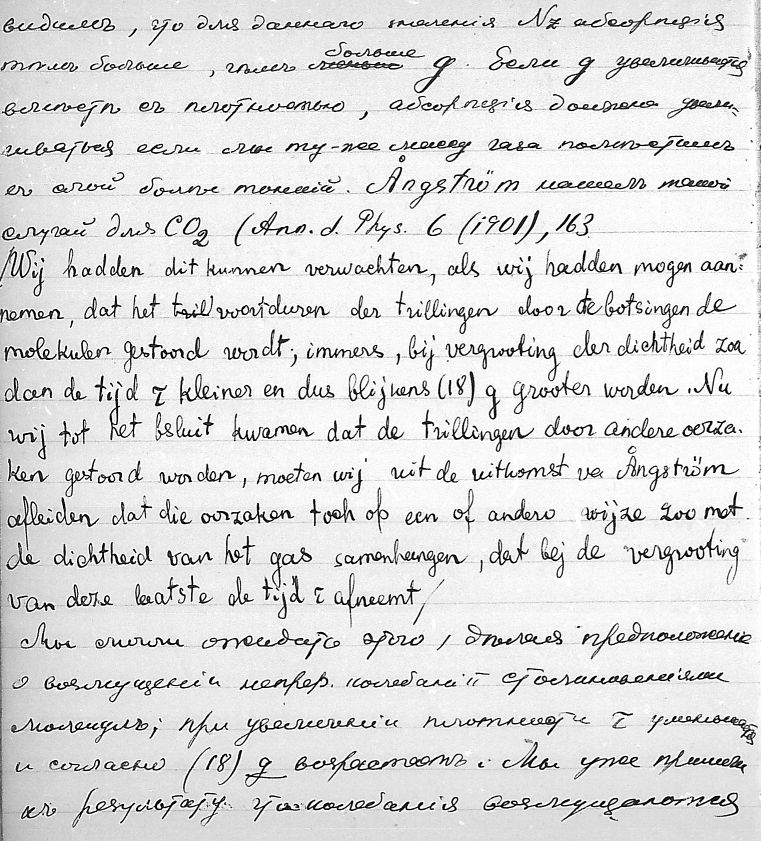 видимъ, что для даннаго значенія Nz абсорпція
тѣмъ больше, чѣмъ меньше больше g. Если g увеличивается
вмѣстѣ съ плотностью, абсорпція должна увели-
чиваться если мы ту-же массу газа помѣстимъ
въ слой болѣе тонкій. Ångström нашелъ такой
случай для CO2 (Ann. d. Phys. 6 (1901), 163
/Wij hadden dit kunnen verwachten, als wij hadden mogen aan-
nemen, dat het tril voortduren der trillingen door de botsingen de
molekulen gestoord wordt; immers, bij vergrooting der dichtheid zou
dan de tijd τ kleiner en dus blijkens (18) g grooter worden. Nu
wij tot het besluit kwamen dat de trillingen door andere oorza-
ken gestoord worden, moeten wij uit de uitkomst va Ångström
afleiden dat die oorzaken toch op een of andere wijze zoo met
de dichtheid van het gas samenhangen, dat bij de vergrooting
van deze laatste de tijd τ afneemt/
Мы могли ожидать этого, дѣлая предположеніе
о возмущеніи непрер. колебаній столкновеніями
молекулъ; при увеличеніи плотности τ уменьшается
и согласно (18) g возрастаетъ. Мы уже пришли
къ результату что колебанія возмущаются